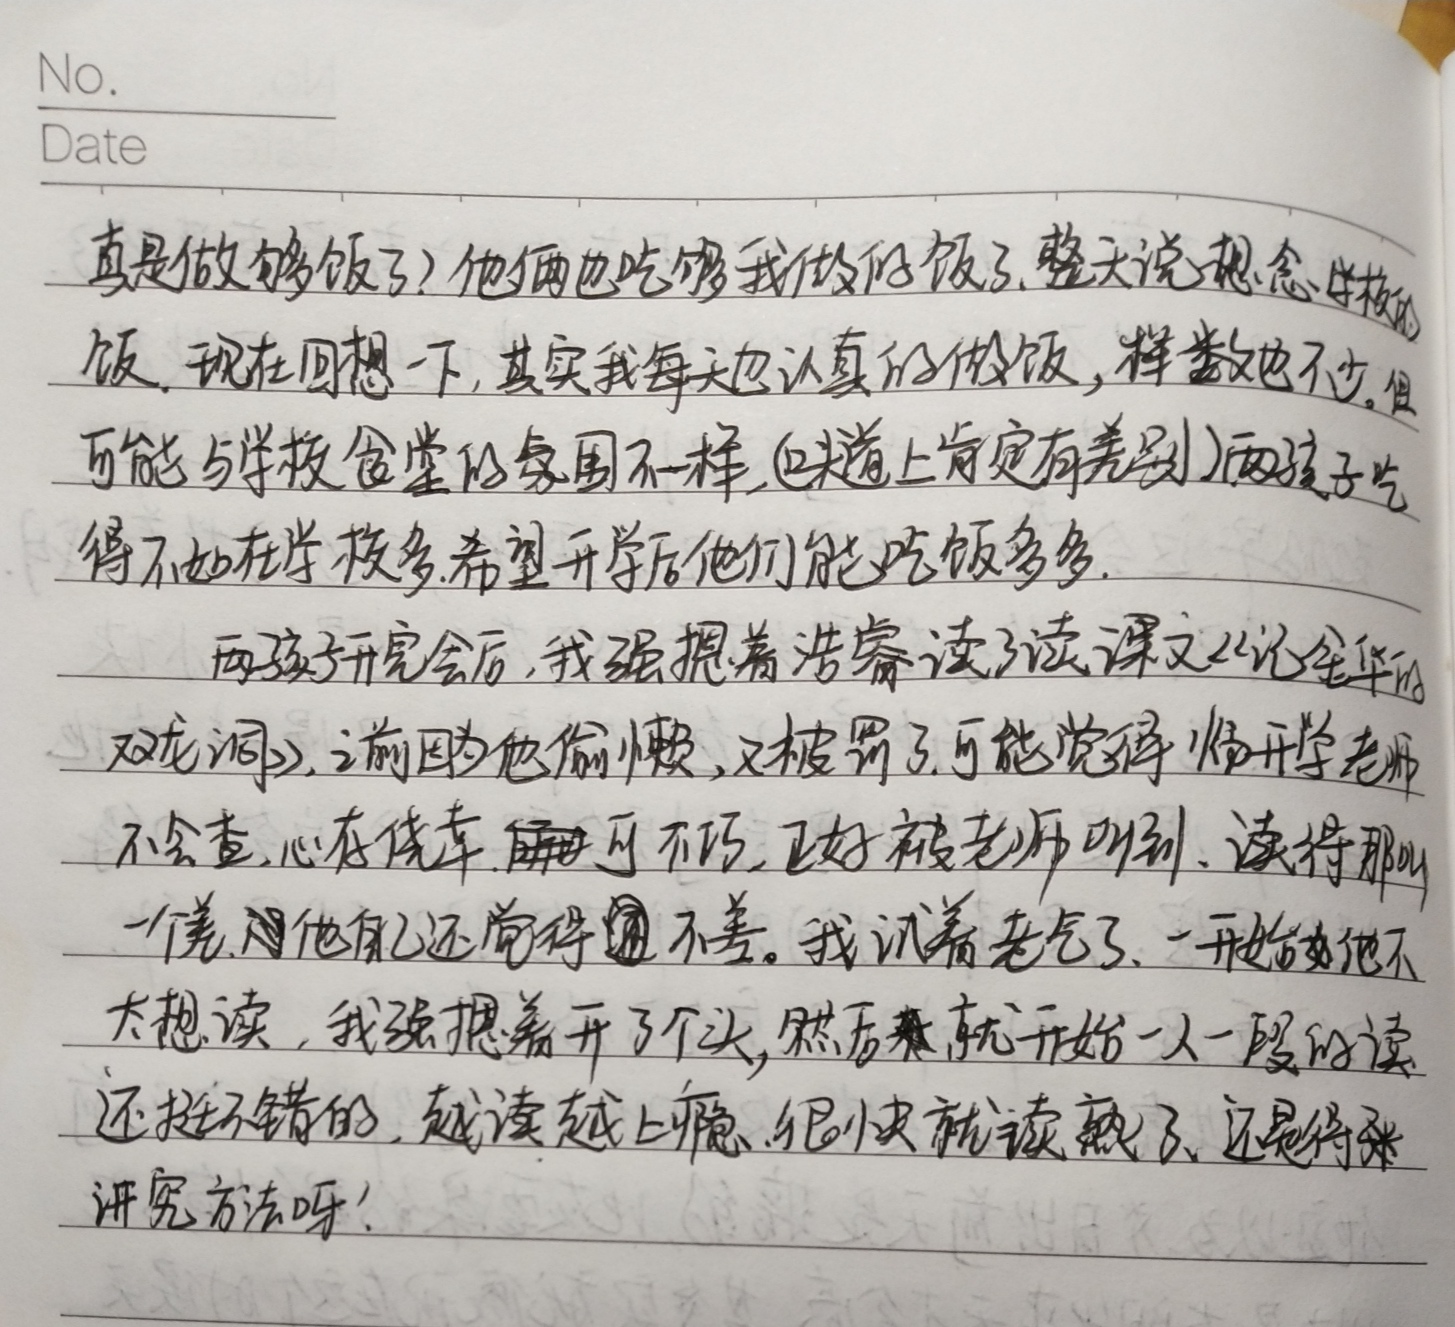 No.
Date
真是做够饭了？他俩也吃够我做的饭了、整天说想念学校的
饭。现在回想一下，其实我每天也认真的做饭，样数也不少。但
可能与学校食堂的氛围不一样，（味道上肯定有差别）两孩子吃
得不如在学校多。希望开学后他们能吃饭多多．
两孩子开完会后，我强摁着浩睿读了读课文《记金华的
双龙洞》。之前因为他偷懒，又被罚了。可能觉得临开学老师
不会查，心存侥幸。可不巧，正好被老师叫到、读得那叫
一个差。他自己还觉得不差。我试着老气了、一开始他不
太想读，我强摁着开了个头，然后就开始一人一段的读
还挺不错的，越读越上瘾、很快就读熟了、还是得
讲究方法呀！